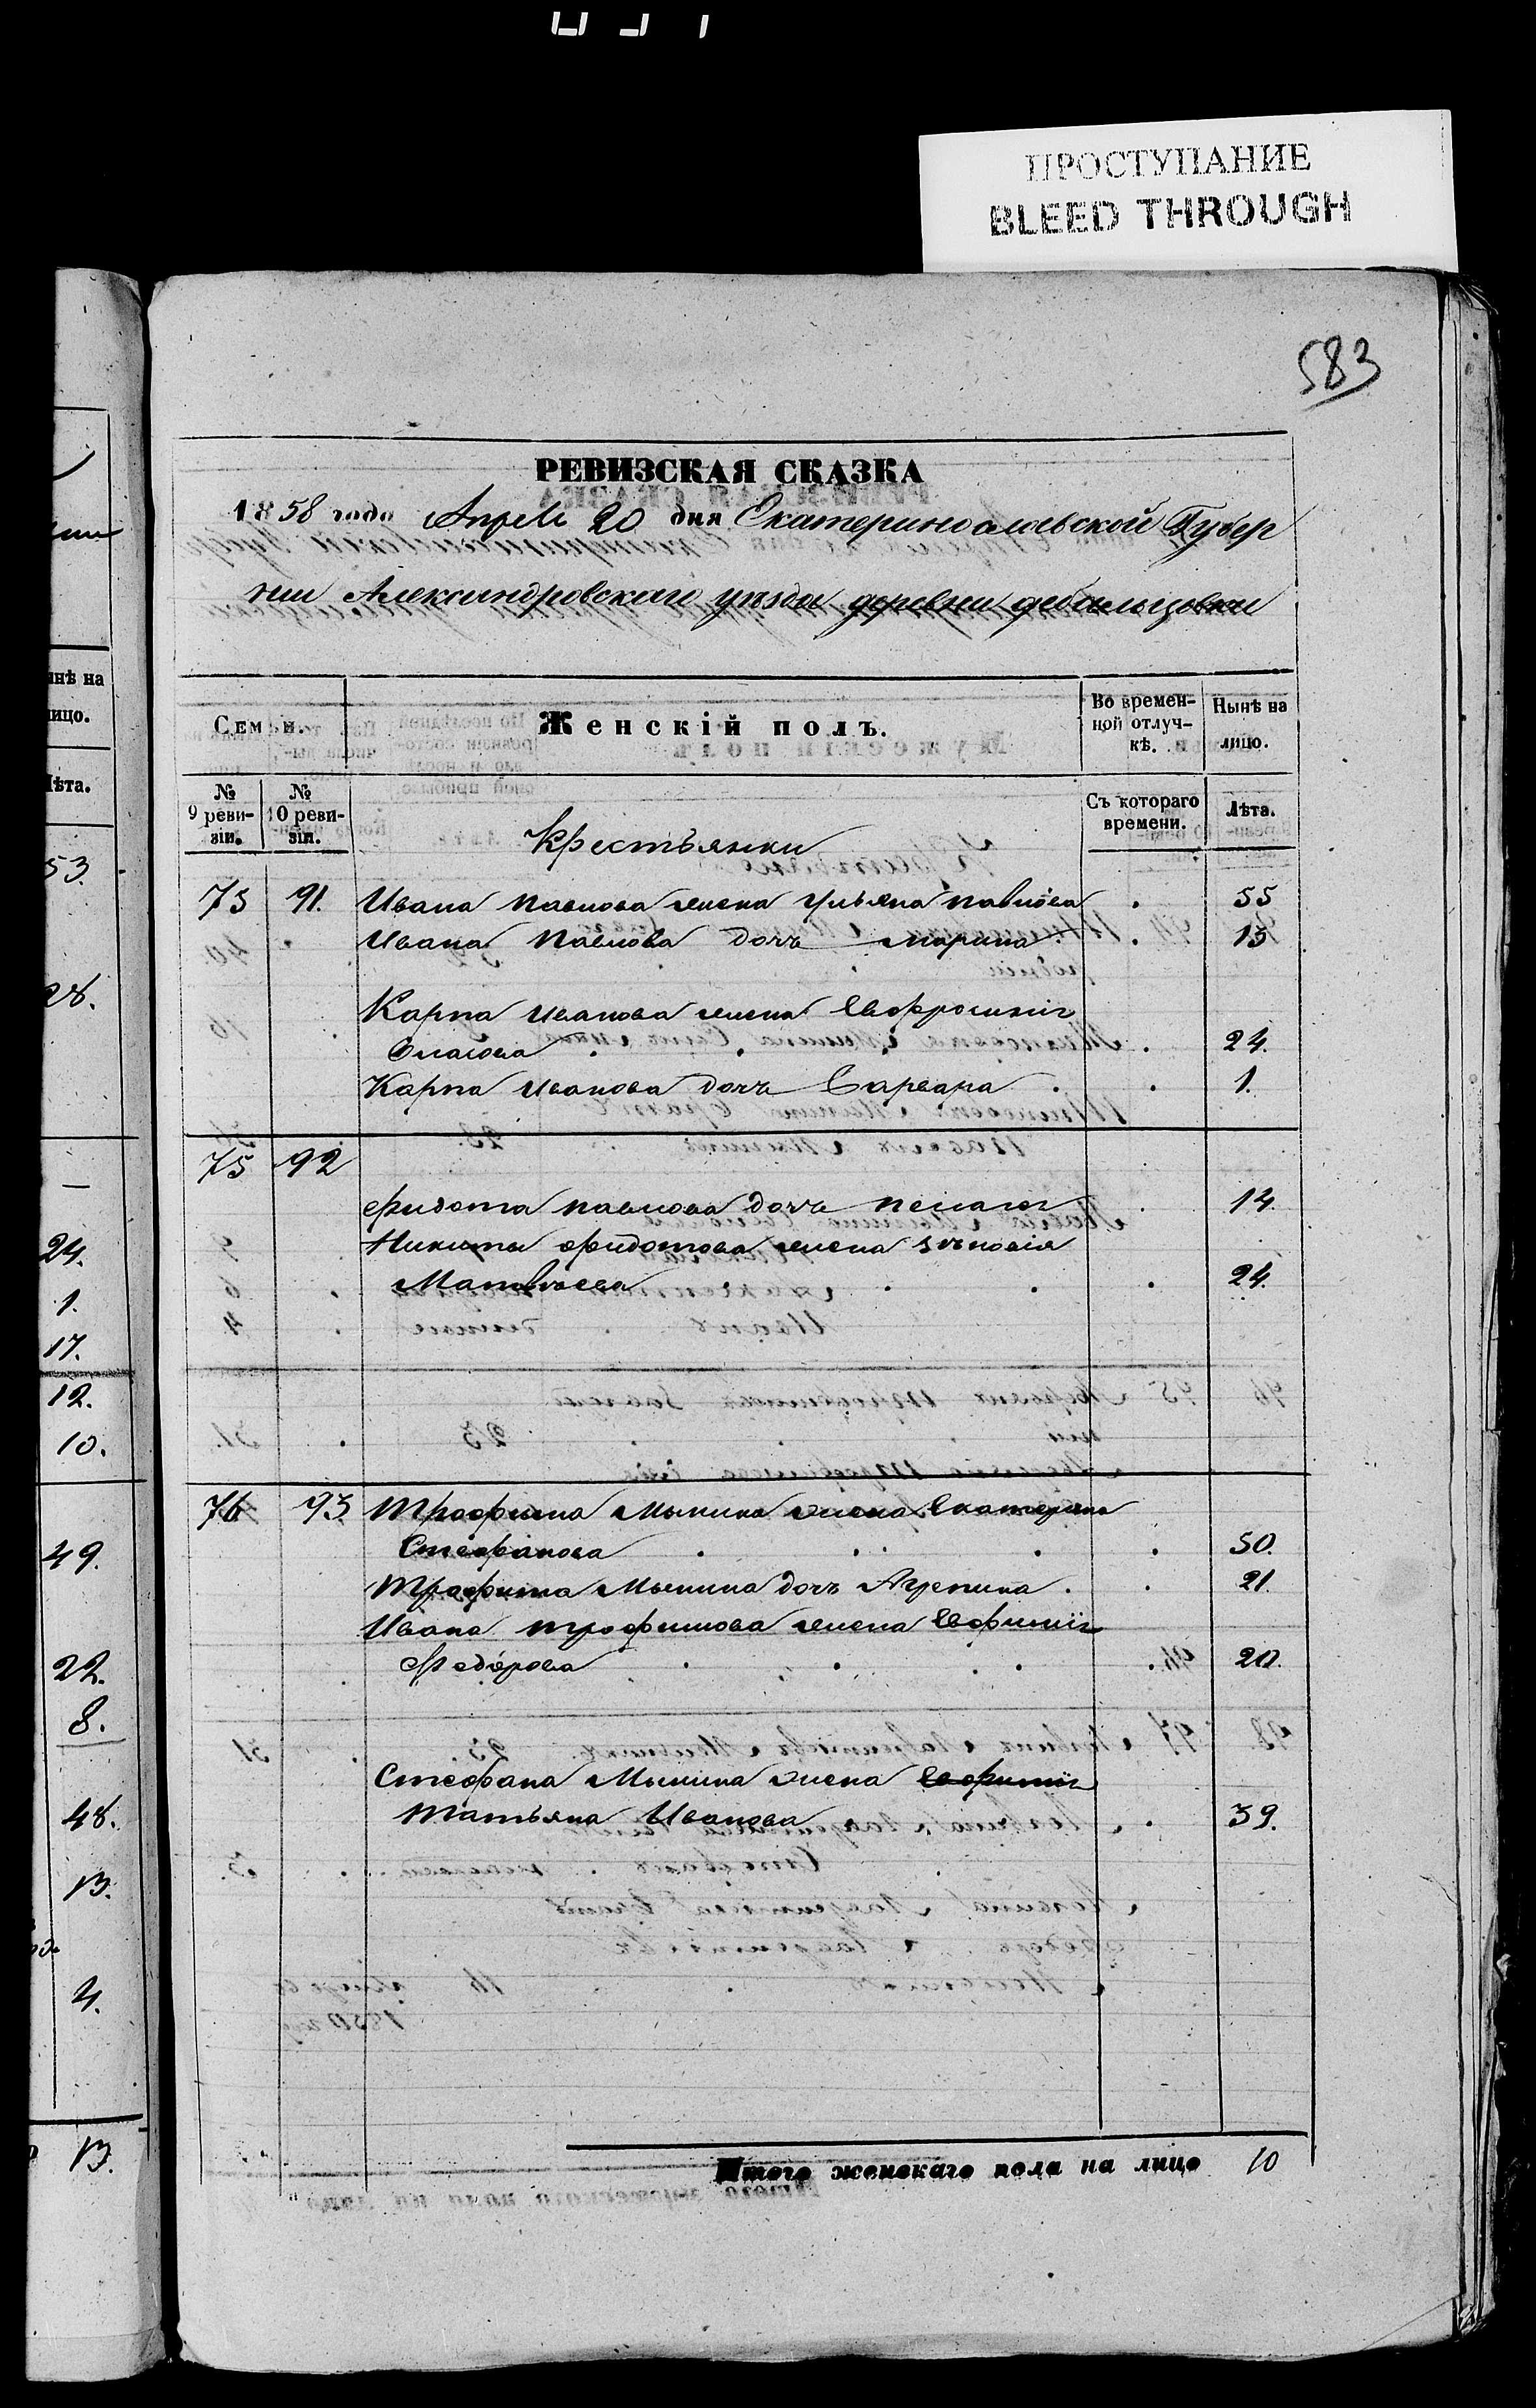 ПРОСТУПАНИЕ
BLEED THROUGH
583
РЕВИЗСКАЯ СКАЗКА
1858 года Апреля 20 дня Екатеринославской Губер
нии Александровскаго уѣзда деревни дебальцовки
Семьи.
Женскій полъ.
Во времен-
ной отлуч-
кѣ.
Нынѣ на
лицо.
№
9 реви-
зіи.
№
10 реви-
зіи.
Съ котораго
времени.
Лѣта.
Крестьянки
75 91. Ивана Павлова жена Ульяна Павлова 55
Ивана Павлова дочь Марина 13
Карпа Иванова жена Евфросинія
Власова 24.
Карпа Иванова дочь Варвара 1.
75 92
Фидота Павлова дочь Пелагея 14.
Никиты Фидотова жена Зѣновія
Матвѣева 24.
76 93 Трофима Мынина жена Екатерина
Стефанова 50.
Трофима Мынина дочь Агрепина 21.
Ивана Трофимова жена Евфимія
Федорова 20.
Стефана Мынина жена Евфимія
Татьяна Иванова 39.
Итого женскаго пола на лицо 10
нѣ на
ицо.
ѣта.
53.
28.
24.
1.
17.
12.
10.
49.
22.
8.
48.
13.
4.
13.